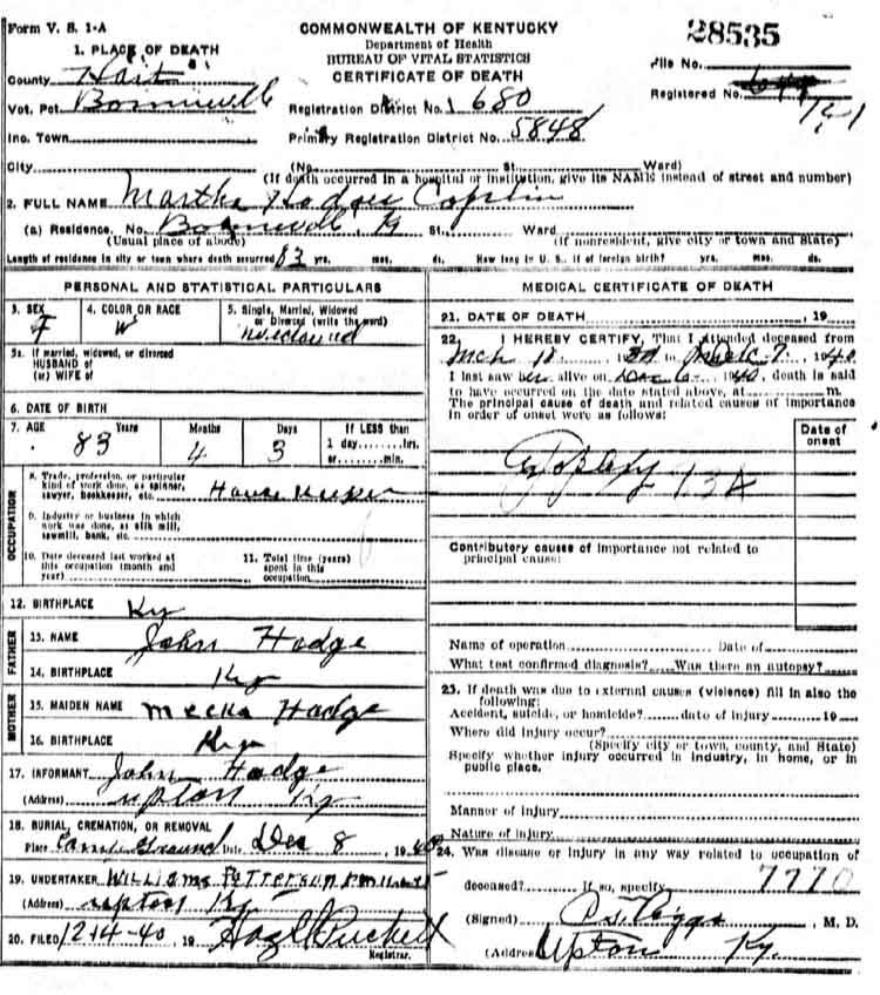 Form V. S. 1-A
COMMONWEALTH OF KENTUCKY
Department of Health
BUREAU OF VITAL STATISTICS
CERTIFICATE OF DEATH
28535
File No.
Registered No.
1. PLACE OF DEATH
County Hart
Vot. Pct. Bonnieville
Registration District No. 680
Ino. Town
Primary Registration District No. 5848
City (No. St. Ward)
(If death occurred in a hospital or institution, give its NAME instead of street and number)
2. FULL NAME Martha
(a) Residence. No. Ky St., Ward
(Usual place of abode) (If nonresident, give city or town and State)
Length of residence in city or town where death occurred 83 yrs. mos. ds. How long in U. S., if of foreign birth? yrs. mos. ds.
PERSONAL AND STATISTICAL PARTICULARS
3. SEX F
4. COLOR OR RACE W
5. Single, Married, Widowed or Divorced (write the word)
Widowed
5a. If married, widowed, or divorced
HUSBAND of
(or) WIFE of
6. DATE OF BIRTH
7. AGE 83 Years 4 Months 3 Days
If LESS than
1 day........hrs.
or........min.
OCCUPATION
8. Trade, profession, or particular
kind of work done, as spinner,
sawyer, bookkeeper, etc. House Keeper
9. Industry or business in which
work was done, as silk mill,
sawmill, bank, etc.
10. Date deceased last worked at
this occupation (month and
year)
11. Total time (years)
spent in this
occupation
12. BIRTHPLACE Ky
FATHER
13. NAME John Hodge
14. BIRTHPLACE Ky
MOTHER
15. MAIDEN NAME Hodge
16. BIRTHPLACE Ky
17. INFORMANT John Hodge
(Address) Upton Ky
18. BURIAL, CREMATION, OR REMOVAL
Place Ground Date Dec 8, 1940
19. UNDERTAKER Williams
(Address) Upton Ky
20. FILED 12-14-40, 19 Puckett
Registrar.
MEDICAL CERTIFICATE OF DEATH
21. DATE OF DEATH , 19
22. I HEREBY CERTIFY, That I attended deceased from
Mch 12 to 7, 1940
I last saw her alive on Dec 6, 1940, death is said
to have occurred on the date stated above, at m.
The principal cause of death and related causes of importance
in order of onset were as follows:
Date of
onset
Contributory cause of importance not related to
principal cause:
Name of operation Date of
What test confirmed diagnosis? Was there an autopsy?
23. If death was due to external causes (violence) fill in also the
following:
Accident, suicide, or homicide? date of injury 19
Where did injury occur?
(Specify city or town, county, and State)
Specify whether injury occurred in industry, in home, or in
public place.
Manner of injury
Nature of injury
24. Was disease or injury in any way related to occupation of
deceased? If so, specify
(Signed) Riggs, M. D.
(Address) Upton Ky.